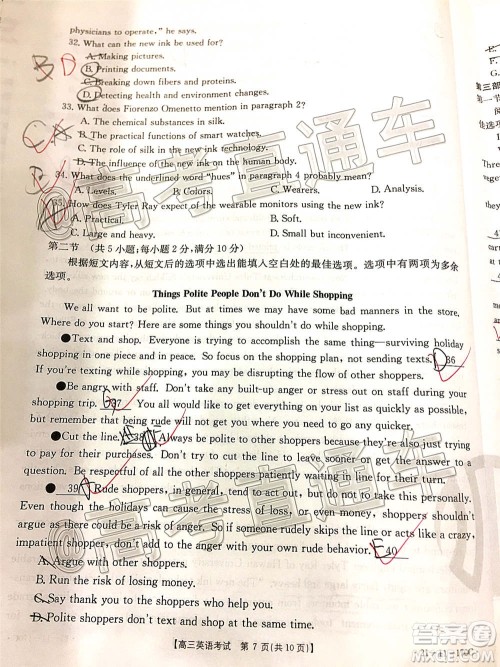 physicians to operate," he says.
32. What can the new ink be used for?
A. Making pictures.
B. Printing documents.
C. Breaking down fibers and proteins.
D. Detecting health and environment changes.
33. What does Fiorenzo Omenetto mention in paragraph 2?
A. The chemical substances in silk.
B. The practical functions of smart watches.
C. The role of silk in the new ink technology.
D. The influence of the new ink on the human body.
34. What does the underlined word "hues" in paragraph 4 probably mean?
A. Levels. B. Colors. C. Wearers. D. Analysis.
35. How does Tyler Ray expect the wearable monitors using the new ink to be?
A. Practical. B. Soft.
C. Large and heavy. D. Small but inconvenient.
第二节 (共5小题;每小题2分,满分10分)
根据短文内容,从短文后的选项中选出能填入空白处的最佳选项。选项中有两项为多余
选项。
Things Polite People Don't Do While Shopping
We all want to be polite. But at times we may have some bad manners in the store.
Where do you start? Here are some things you shouldn't do while shopping.
●Text and shop. Everyone is trying to accomplish the same thing—surviving holiday
shopping in one piece and in peace. So focus on the shopping plan, not sending texts. D 36
If you're texting while shopping, you may disrupt the flow of other shoppers.
●Be angry with staff. Don't take any built-up anger or stress out on staff during your
shopping trip. 37 You all would like to get in and out of stores as quickly as possible, but
remember that being rude will not get you going any quicker.
●Cut the line. 38 Always be polite to other shoppers who are also in line trying to
pay for their purchases. Don't try to sneak your way to the front of the line to avoid
waiting. Be respectful of all the other shoppers who are waiting patiently to get to the
cashier.
● 39 Rude shoppers, in general, tend to act out to get a reaction out of someone.
Even though the holidays can cause you to be stressed out yourself, shoppers shouldn't
argue as there could be a risk of anger. So if someone rudely skips the line or acts like a crazy,
impatient shopper, don't try to anger them with your own rude behavior. E 40
A. Argue with other shoppers.
B. Run the risk of losing money.
C. Say thank you to the shops you head to.
D. Do not text and shop at the same time.
【高三英语考试 第7页(共10页)】
高考直通车